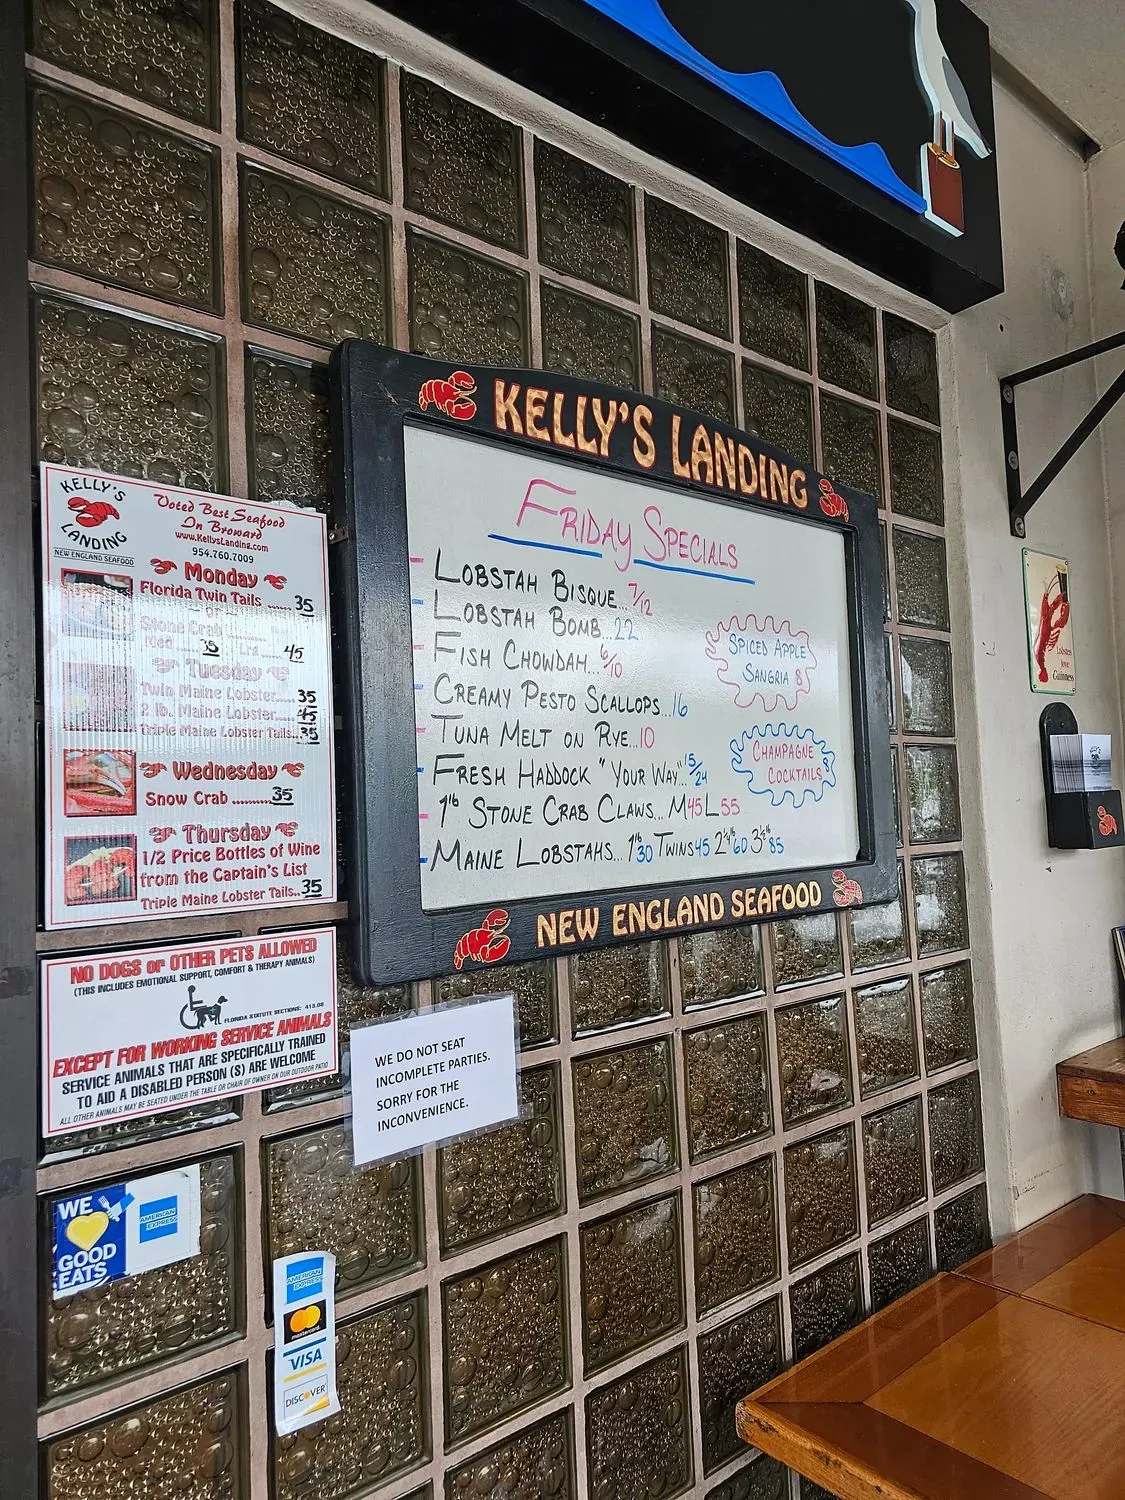 KELLY'S LANDING
FRIDAY SPECIALS
LOBSTAH BISQUE... 7/12
LOBSTAH BOMB...22
FISH CHOWDAH...6/10
CREAMY PESTO SCALLOPS..16
TUNA MELT ON RYE...10
FRESH HADDOCK "YOUR WAY".. 15/24
1lb STONE CRAB CLAWS... M45 L55
MAINE LOBSTAHS... 1lb 30 TWINS 45 2 1/4lb 60 3 1/2lb 85
SPICED APPLE
SANGRIA 8
CHAMPAGNE
COCKTAILS 8
NEW ENGLAND SEAFOOD
KELLY'S
LANDING
NEW ENGLAND SEAFOOD
Voted Best Seafood
In Broward
www.KellysLanding.com
954.760.7009
Monday
Florida Twin Tails ...... 35
or
Stone Crab
Med ..... 35 / Lrg ..... 45
Tuesday
Twin Maine Lobster.... 35
2 lb. Maine Lobster.... 45
Triple Maine Lobster Tails... 35
Wednesday
Snow Crab ..........35
Thursday
1/2 Price Bottles of Wine
from the Captain's List
Triple Maine Lobster Tails..35
NO DOGS or OTHER PETS ALLOWED
(THIS INCLUDES EMOTIONAL SUPPORT, COMFORT & THERAPY ANIMALS)
FLORIDA STATUTE SECTIONS: 413.08
EXCEPT FOR WORKING SERVICE ANIMALS
SERVICE ANIMALS THAT ARE SPECIFICALLY TRAINED
TO AID A DISABLED PERSON (S) ARE WELCOME
ALL OTHER ANIMALS MAY BE SEATED UNDER THE TABLE OR CHAIR OF OWNER ON OUR OUTDOOR PATIO
WE DO NOT SEAT
INCOMPLETE PARTIES.
SORRY FOR THE
INCONVENIENCE.
WE
GOOD
EATS
AMERICAN
EXPRESS
AMERICAN
EXPRESS
mastercard
VISA
DISCOVER
Lobsters
love
Guinness